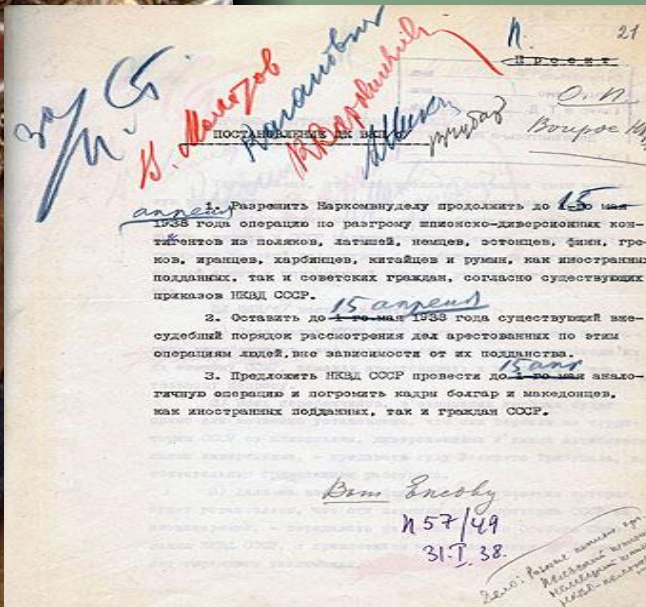 П. 21
Проект
за И. Ст.
В. Молотов
Каганович
К. Ворошилов
А. Микоян
Чубарь
О. П.
Вопрос НКВД
ПОСТАНОВЛЕНИЕ ЦК ВКП/б/
15
1. Разрешить Наркомвнуделу продолжить до 1-го мая
апреля
1938 года операцию по разгрому шпионско-диверсионных кон-
тингентов из поляков, латышей, немцев, эстонцев, финн, гре-
ков, иранцев, харбинцев, китайцев и румын, как иностранных
подданных, так и советских граждан, согласно существующих
приказов НКВД СССР.
15 апреля
2. Оставить до 1-го мая 1938 года существующий вне-
судебный порядок рассмотрения дел арестованных по этим
операциям людей, вне зависимости от их подданства.
15 апр
3. Предложить НКВД СССР провести до 1-го мая анало-
гичную операцию и погромить кадры болгар и македонцев,
как иностранных подданных, так и граждан СССР.
Ежову
П 57/49
31.I.38.